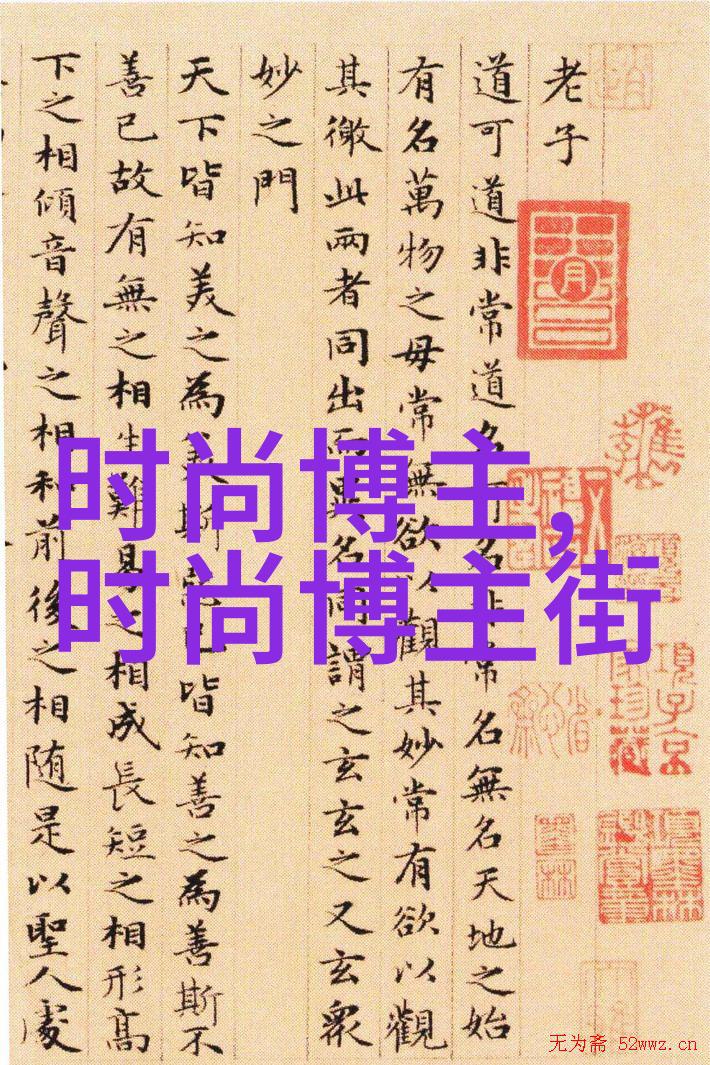 老子
道可道非常道名可名非常名無名天地之始
有名萬物之母常無欲以觀其妙常有欲以觀
其徼此兩者同出而異名同謂之玄玄之又玄衆
妙之門
天下皆知美之為美斯惡已皆知善之為善斯不
善已故有無之相生難易之相成長短之相形高
下之相傾音聲之相和前後之相随是以聖人處
时尚博主,
时尚博主街
項子京
家珍藏
墨林
无为斋 52wwz.cn